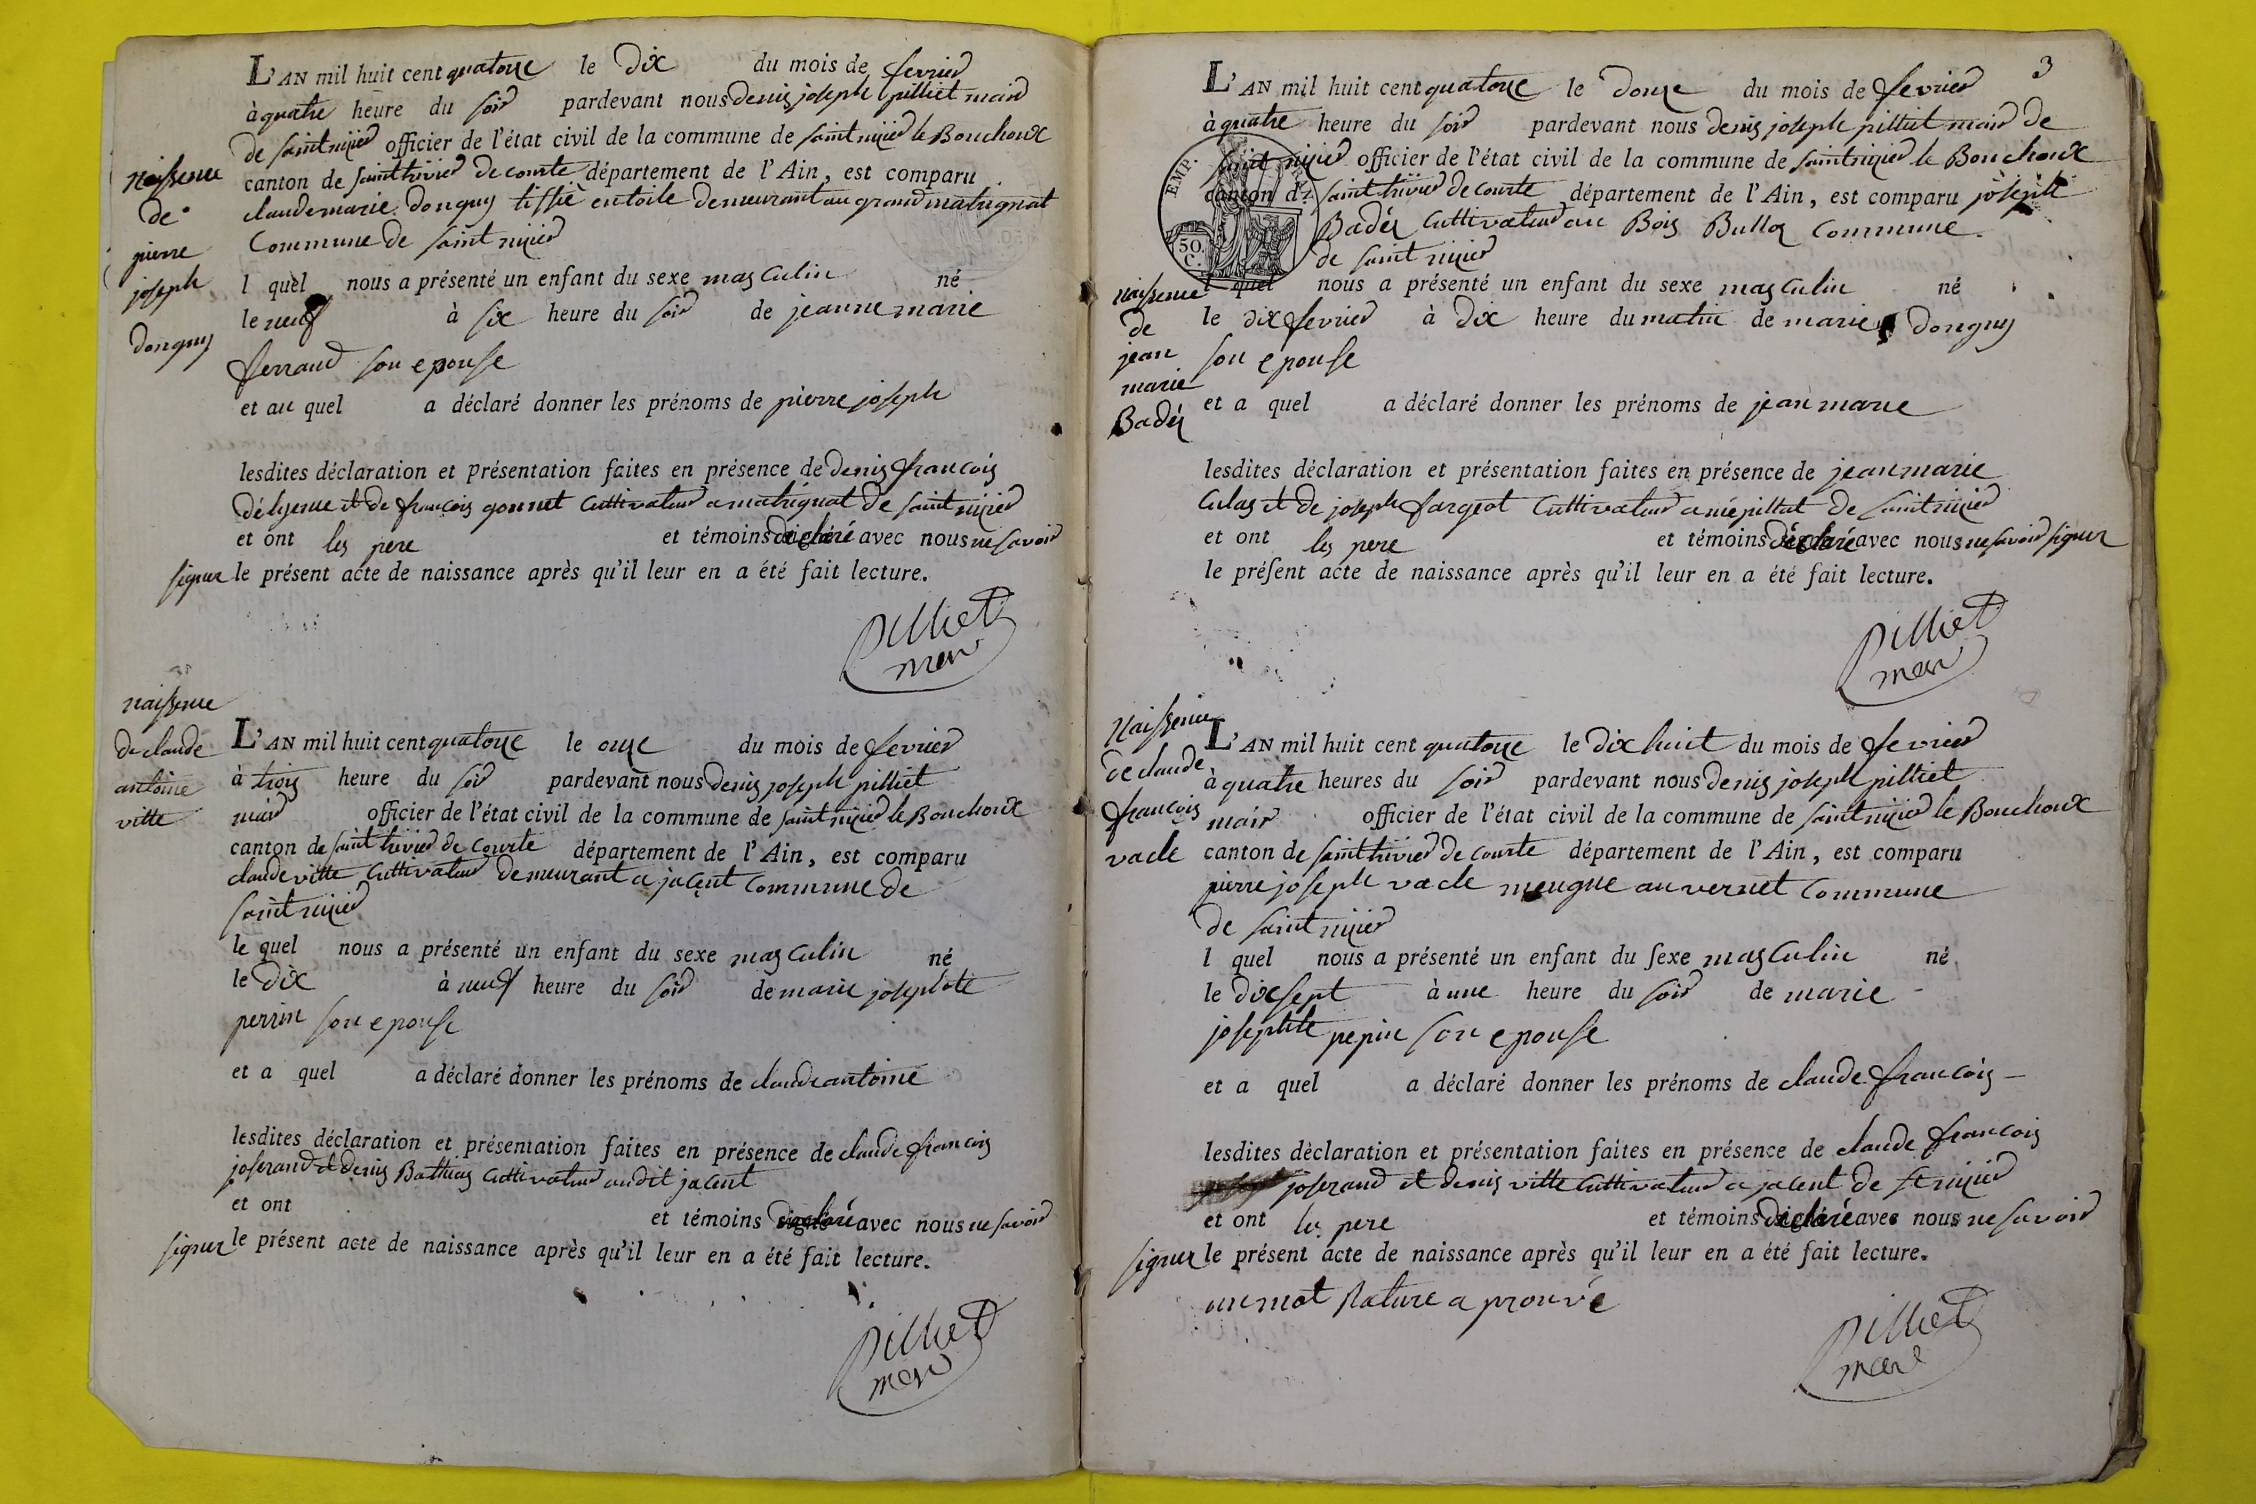 L'AN mil huit cent quatorze le dix du mois de fevrier
à quatre heure du soir pardevant nous denis joseph pilliet mair
de saint nizier officier de l'état civil de la commune de saint nizier le Bouchoux
canton de saint trivier de courte département de l'Ain, est comparu
claude marie donguy tissié en toile demeurant au grand matrignat
commune de saint nizier
l quel nous a présenté un enfant du sexe masculin né
le neuf à six heure du soir de jeanne marie
ferrand son epouse
et au quel a déclaré donner les prénoms de pierre joseph
lesdites déclaration et présentation faites en présence de denis francois
et de francois gonnet cultivateur a matrignat de saint nizier
et ont les pere et témoins déclaré avec nous ne savoir
signer le présent acte de naissance après qu'il leur en a été fait lecture.
Pilliet
mere
naissence
de
pierre
joseph
donguy
naissence
de claude
antoine
ville
L'AN mil huit cent quatorze le onze du mois de fevrier
à trois heure du soir pardevant nous denis joseph pilliet
mair officier de l'état civil de la commune de saint nizier le Bouchoux
canton de saint trivier de courte département de l'Ain, est comparu
claude ville cultivateur demeurant a jacent commune de
saint nizier
le quel nous a présenté un enfant du sexe masculin né
le dix à neuf heure du soir de marie josephte
perrin son epouse
et a quel a déclaré donner les prénoms de claude antoine
lesdites déclaration et présentation faites en présence de claude francois
joserand et denis Bathias cultivateur audit jacent
et ont et témoins déclaré avec nous ne savoir
signer le présent acte de naissance après qu'il leur en a été fait lecture.
Pilliet
mere
3
L'AN mil huit cent quatorze le douze du mois de fevrier
à quatre heure du soir pardevant nous denis joseph pilliet mair de
saint nizier officier de l'état civil de la commune de saint nizier le Bouchoux
canton d saint trivier de courte département de l'Ain, est comparu joseph
Badez cultivateur au Bois Bulloz commune
de saint nizier
l quel nous a présenté un enfant du sexe masculin né
le dix fevrier à dix heure du matin de marie donguy
son epouse
et a quel a déclaré donner les prénoms de jean marie
lesdites déclaration et présentation faites en présence de jean marie
culas et de joseph fargeot cultivateur a mépillat de saint nizier
et ont les pere et témoins déclaré avec nous ne savoir signer
le présent acte de naissance après qu'il leur en a été fait lecture.
Pilliet
mere
EMP.
50
C.
naissence
de
jean
marie
Badez
Naissence
de claude
francois
vacle
L'AN mil huit cent quatorze le dix huit du mois de fevrier
à quatre heures du soir pardevant nous denis joseph pilliet
mair officier de l'état civil de la commune de saint nizier le Bouchoux
canton de saint trivier de courte département de l'Ain, est comparu
pierre joseph vacle meugne au vernet commune
de saint nizier
l quel nous a présenté un enfant du sexe masculin né
le dix sept à une heure du soir de marie
josephte pepin son epouse
et a quel a déclaré donner les prénoms de claude francois
lesdites déclaration et présentation faites en présence de claude francois
joserand et denis ville cultivateur a jacent de st nizier
et ont les pere et témoins déclaré avec nous ne savoir
signer le présent acte de naissance après qu'il leur en a été fait lecture.
un mot rature a prouvé
Pilliet
mere